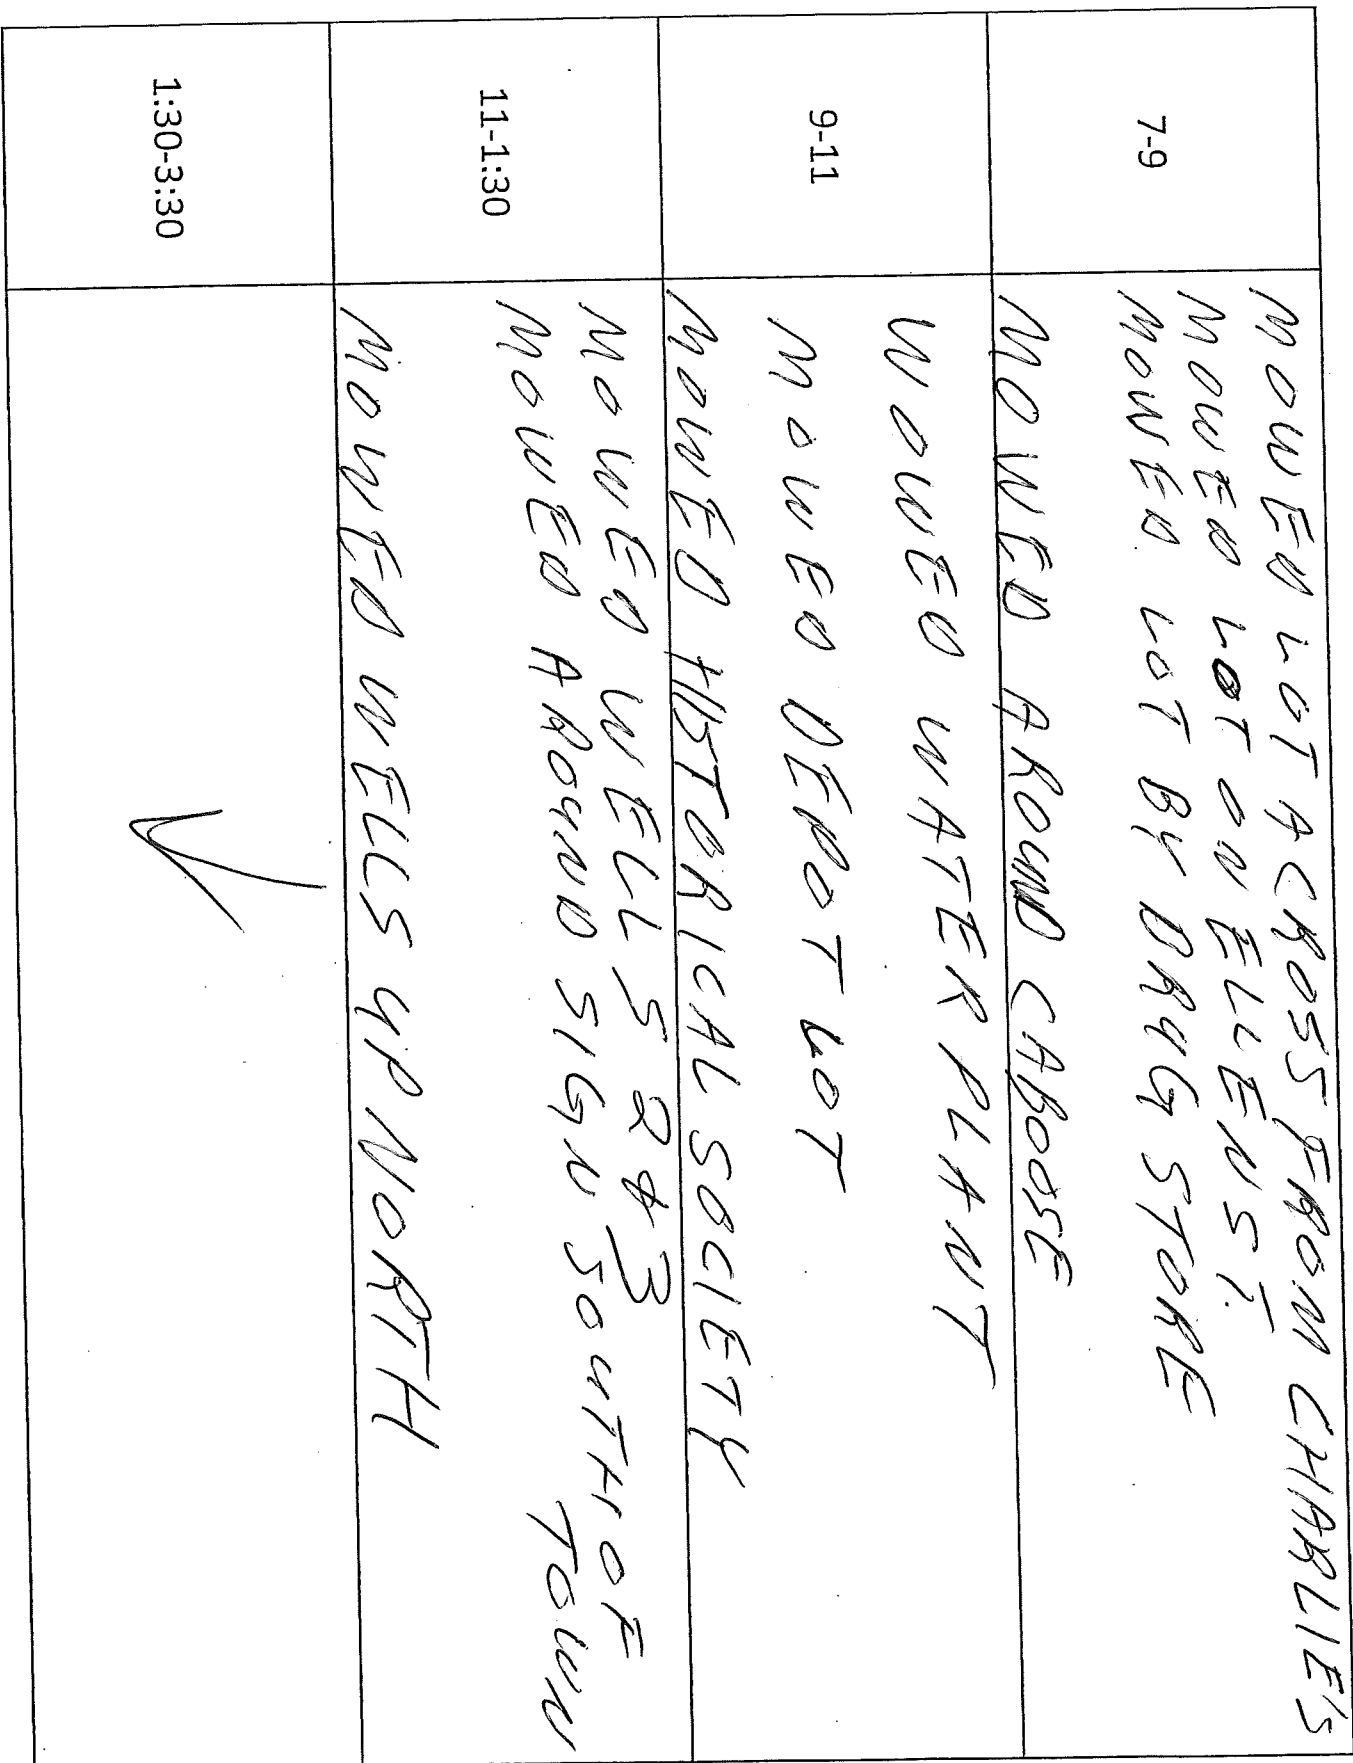 7-9
MOWED LOT ACROSS FROM CHARLIE'S
MOWED LOT ON ELLEN ST.
MOWED LOT BY DRUG STORE
MOWED AROUND CABOOSE
9-11
WOWED WATER PLANT
MOWED DEPOT LOT
MOWED HISTORICAL SOCIETY
11-1:30
MOWED WELLS 2 & 3
MOWED AROUND SIGN SOUTH OF
TOWN
MOWED WELLS UP NORTH
1:30-3:30